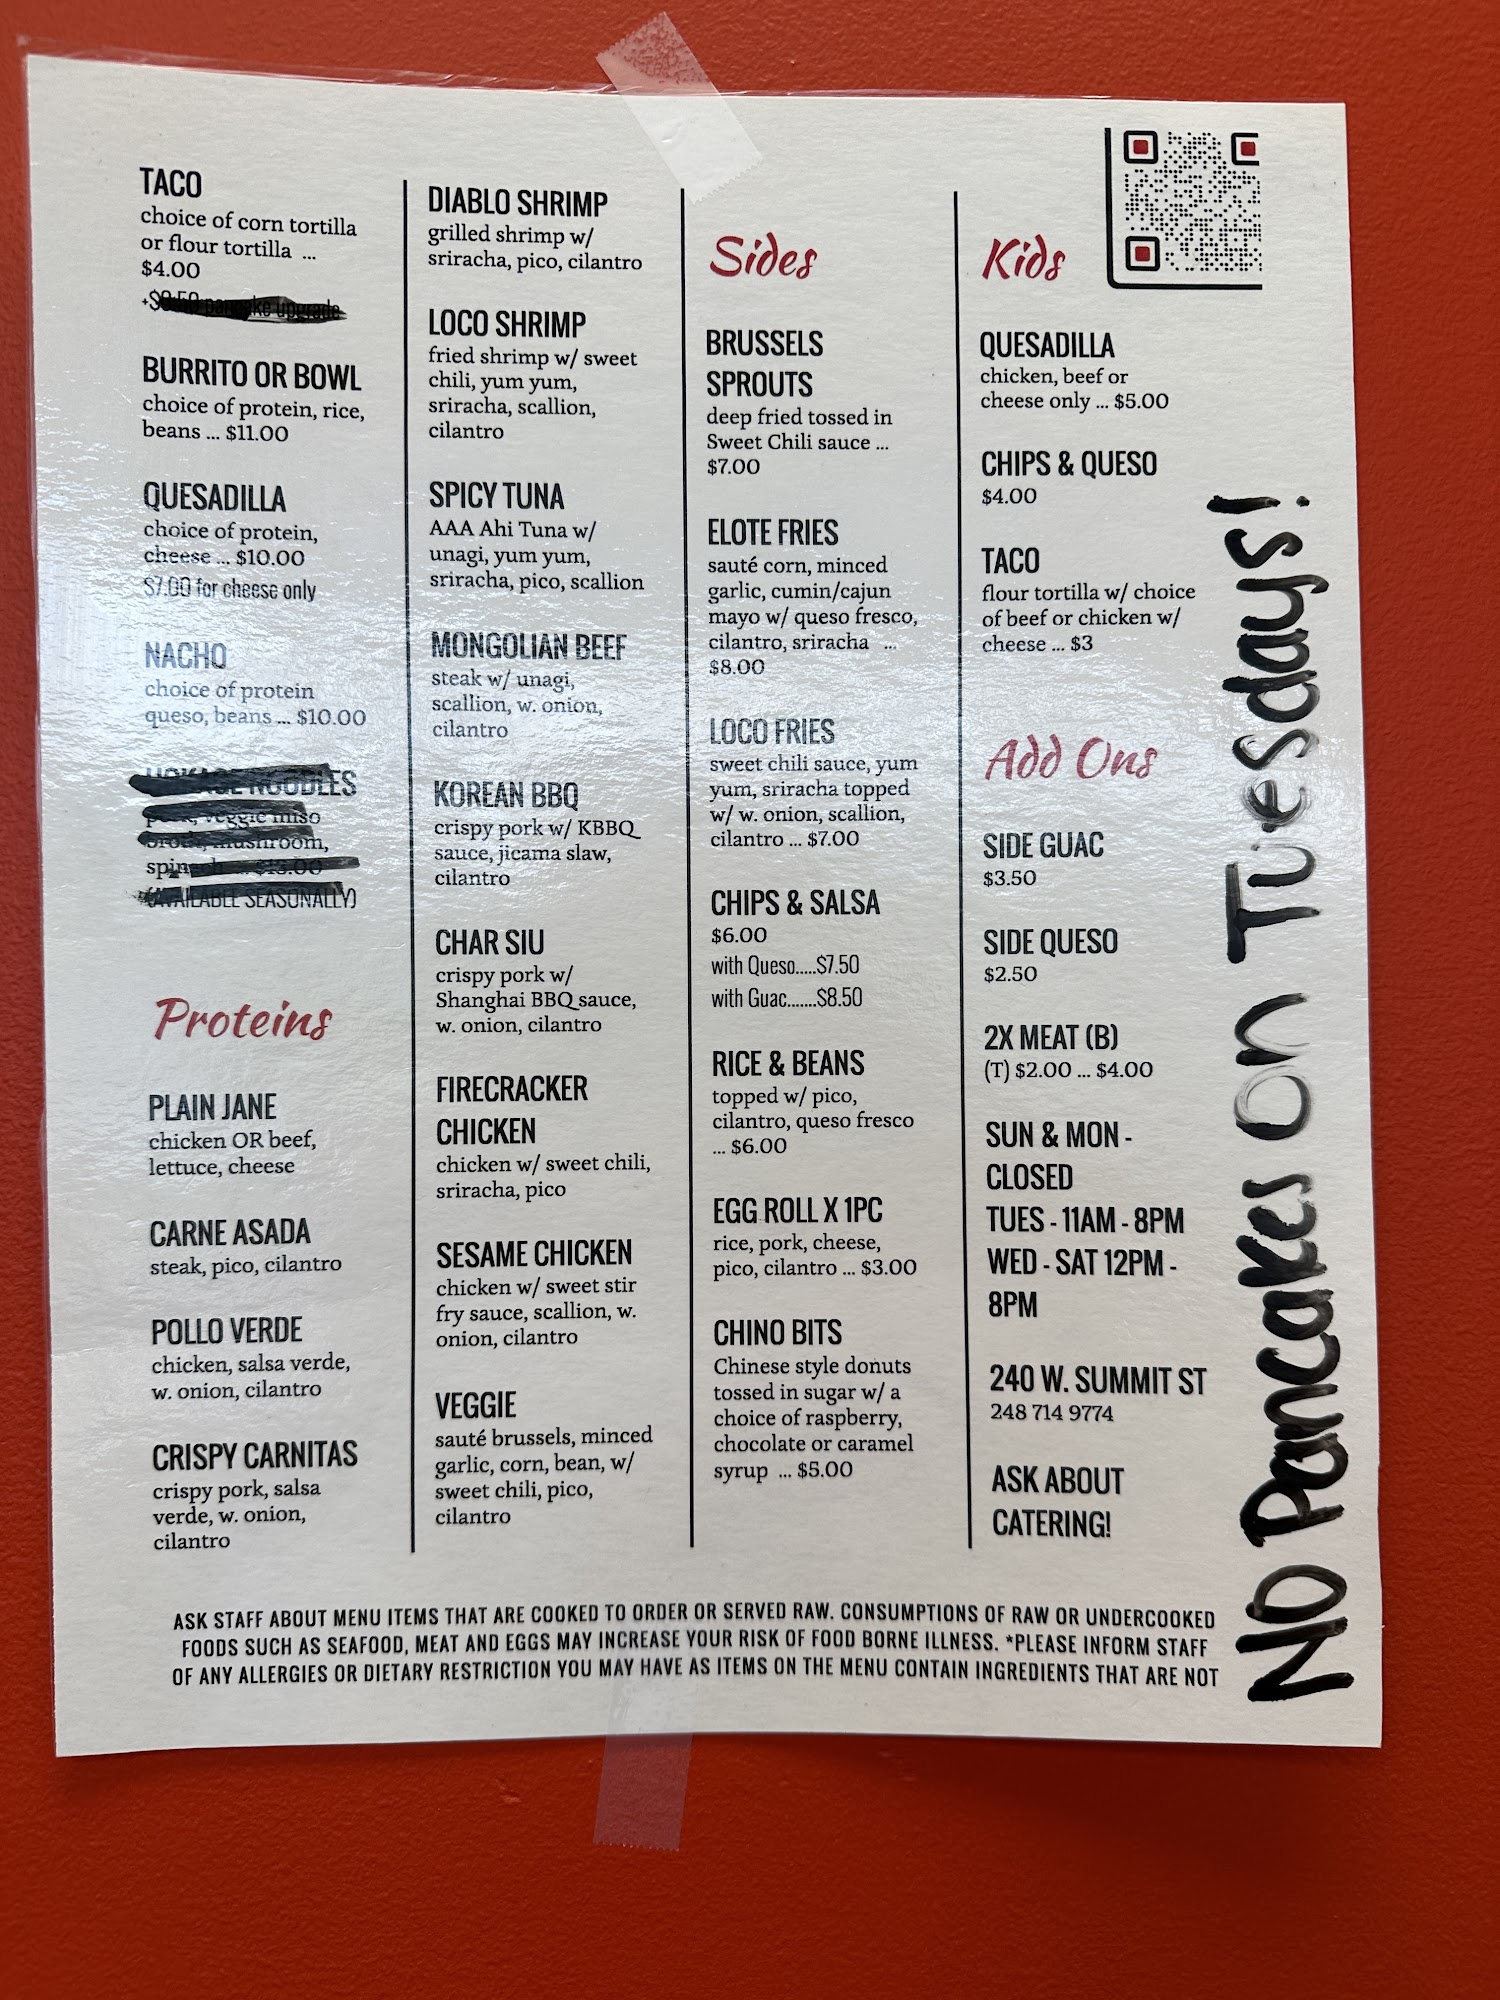 TACO
choice of corn tortilla
or flour tortilla ...
$4.00
upgrade
BURRITO OR BOWL
choice of protein, rice,
beans ... $11.00
QUESADILLA
choice of protein,
cheese ... $10.00
$7.00 for cheese only
NACHO
choice of protein
queso, beans ... $10.00
NOODLES
veggie miso
mushroom,
$13.00
(AVAILABLE SEASONALLY)
Proteins
PLAIN JANE
chicken OR beef,
lettuce, cheese
CARNE ASADA
steak, pico, cilantro
POLLO VERDE
chicken, salsa verde,
w. onion, cilantro
CRISPY CARNITAS
crispy pork, salsa
verde, w. onion,
cilantro
DIABLO SHRIMP
grilled shrimp w/
sriracha, pico, cilantro
LOCO SHRIMP
fried shrimp w/ sweet
chili, yum yum,
sriracha, scallion,
cilantro
SPICY TUNA
AAA Ahi Tuna w/
unagi, yum yum,
sriracha, pico, scallion
MONGOLIAN BEEF
steak w/ unagi,
scallion, w. onion,
cilantro
KOREAN BBQ
crispy pork w/ KBBQ
sauce, jicama slaw,
cilantro
CHAR SIU
crispy pork w/
Shanghai BBQ sauce,
w. onion, cilantro
FIRECRACKER
CHICKEN
chicken w/ sweet chili,
sriracha, pico
SESAME CHICKEN
chicken w/ sweet stir
fry sauce, scallion, w.
onion, cilantro
VEGGIE
sauté brussels, minced
garlic, corn, bean, w/
sweet chili, pico,
cilantro
Sides
BRUSSELS
SPROUTS
deep fried tossed in
Sweet Chili sauce ...
$7.00
ELOTE FRIES
sauté corn, minced
garlic, cumin/cajun
mayo w/ queso fresco,
cilantro, sriracha ...
$8.00
LOCO FRIES
sweet chili sauce, yum
yum, sriracha topped
w/ w. onion, scallion,
cilantro ... $7.00
CHIPS & SALSA
$6.00
with Queso.....$7.50
with Guac.......$8.50
RICE & BEANS
topped w/ pico,
cilantro, queso fresco
... $6.00
EGG ROLL X 1PC
rice, pork, cheese,
pico, cilantro ... $3.00
CHINO BITS
Chinese style donuts
tossed in sugar w/ a
choice of raspberry,
chocolate or caramel
syrup ... $5.00
Kids
QUESADILLA
chicken, beef or
cheese only ... $5.00
CHIPS & QUESO
$4.00
TACO
flour tortilla w/ choice
of beef or chicken w/
cheese ... $3
Add Ons
SIDE GUAC
$3.50
SIDE QUESO
$2.50
2X MEAT (B)
(T) $2.00 ... $4.00
SUN & MON -
CLOSED
TUES - 11AM - 8PM
WED - SAT 12PM -
8PM
240 W. SUMMIT ST
248 714 9774
ASK ABOUT
CATERING!
NO Pancakes on Tuesdays!
ASK STAFF ABOUT MENU ITEMS THAT ARE COOKED TO ORDER OR SERVED RAW. CONSUMPTIONS OF RAW OR UNDERCOOKED
FOODS SUCH AS SEAFOOD, MEAT AND EGGS MAY INCREASE YOUR RISK OF FOOD BORNE ILLNESS. *PLEASE INFORM STAFF
OF ANY ALLERGIES OR DIETARY RESTRICTION YOU MAY HAVE AS ITEMS ON THE MENU CONTAIN INGREDIENTS THAT ARE NOT